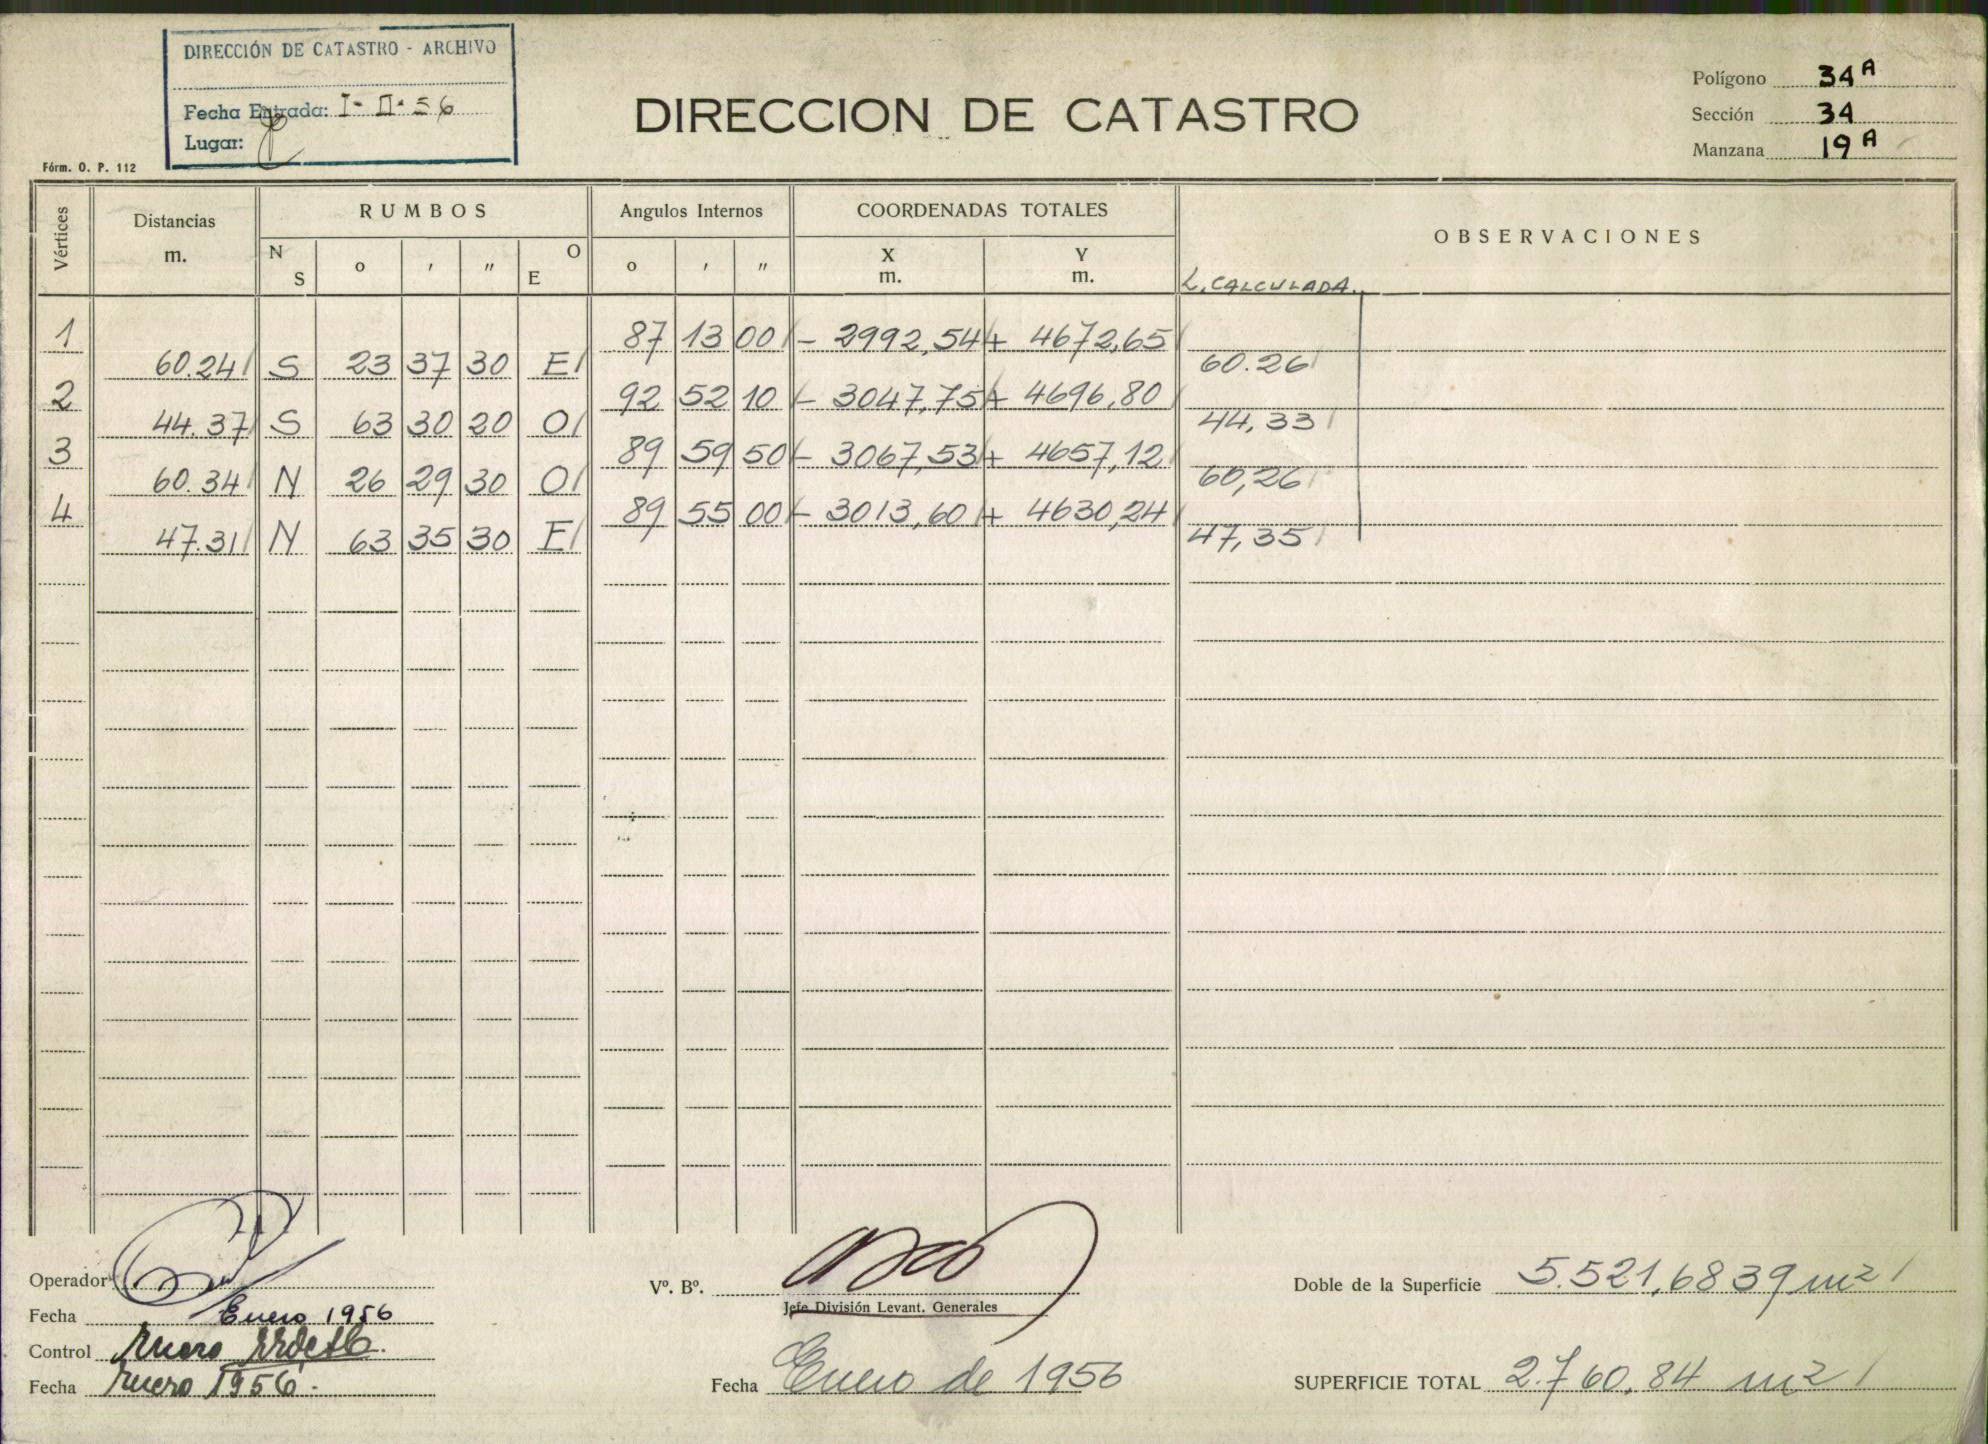 DIRECCIÓN DE CATASTRO - ARCHIVO
Fecha Entrada: I-II-56
Lugar:
Fórm. O. P. 112
DIRECCION DE CATASTRO
Polígono 34 A
Sección 34
Manzana 19 A
Vértices Distancias m. RUMBOS Angulos Internos COORDENADAS TOTALES OBSERVACIONES
N S o ' " O E o ' " X m. Y m. L. CALCULADA.
1 87 13 00 - 2992,54 + 4672,65
60.24 S 23 37 30 E 60.26
2 92 52 10 - 3047,75 + 4696,80
44.37 S 63 30 20 O 44,33
3 89 59 50 - 3067,53 + 4657,12
60.34 N 26 29 30 O 60,26
4 89 55 00 - 3013,60 + 4630,24
47.31 N 63 35 30 E 47,35
Operador
Fecha Enero 1956
Control
Fecha Enero 1956.
Vº. Bº.
Jefe División Levant. Generales
Fecha Enero de 1956
Doble de la Superficie 5.521,6839 m2
SUPERFICIE TOTAL 2.760,84 m2